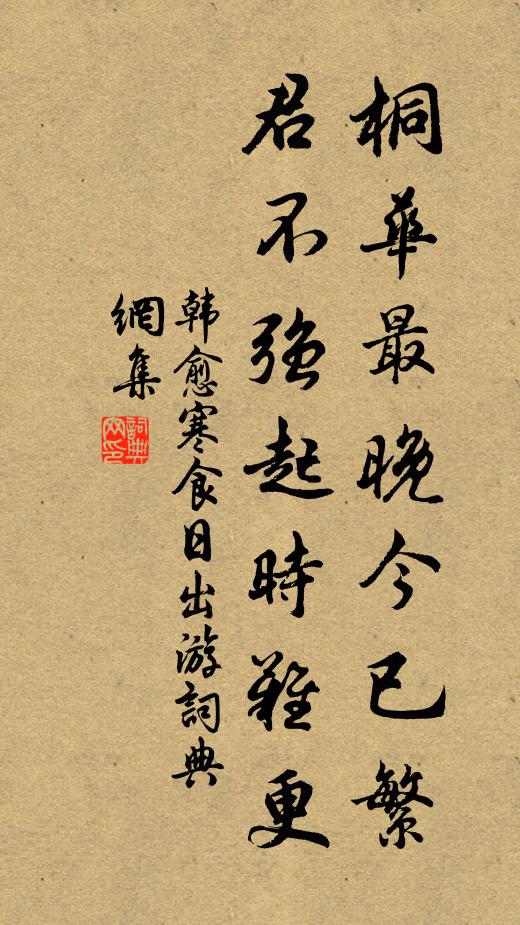 桐華最晚今已繁
君不強起時難更
韩愈寒食日出游詞典
網集
詞典
网印